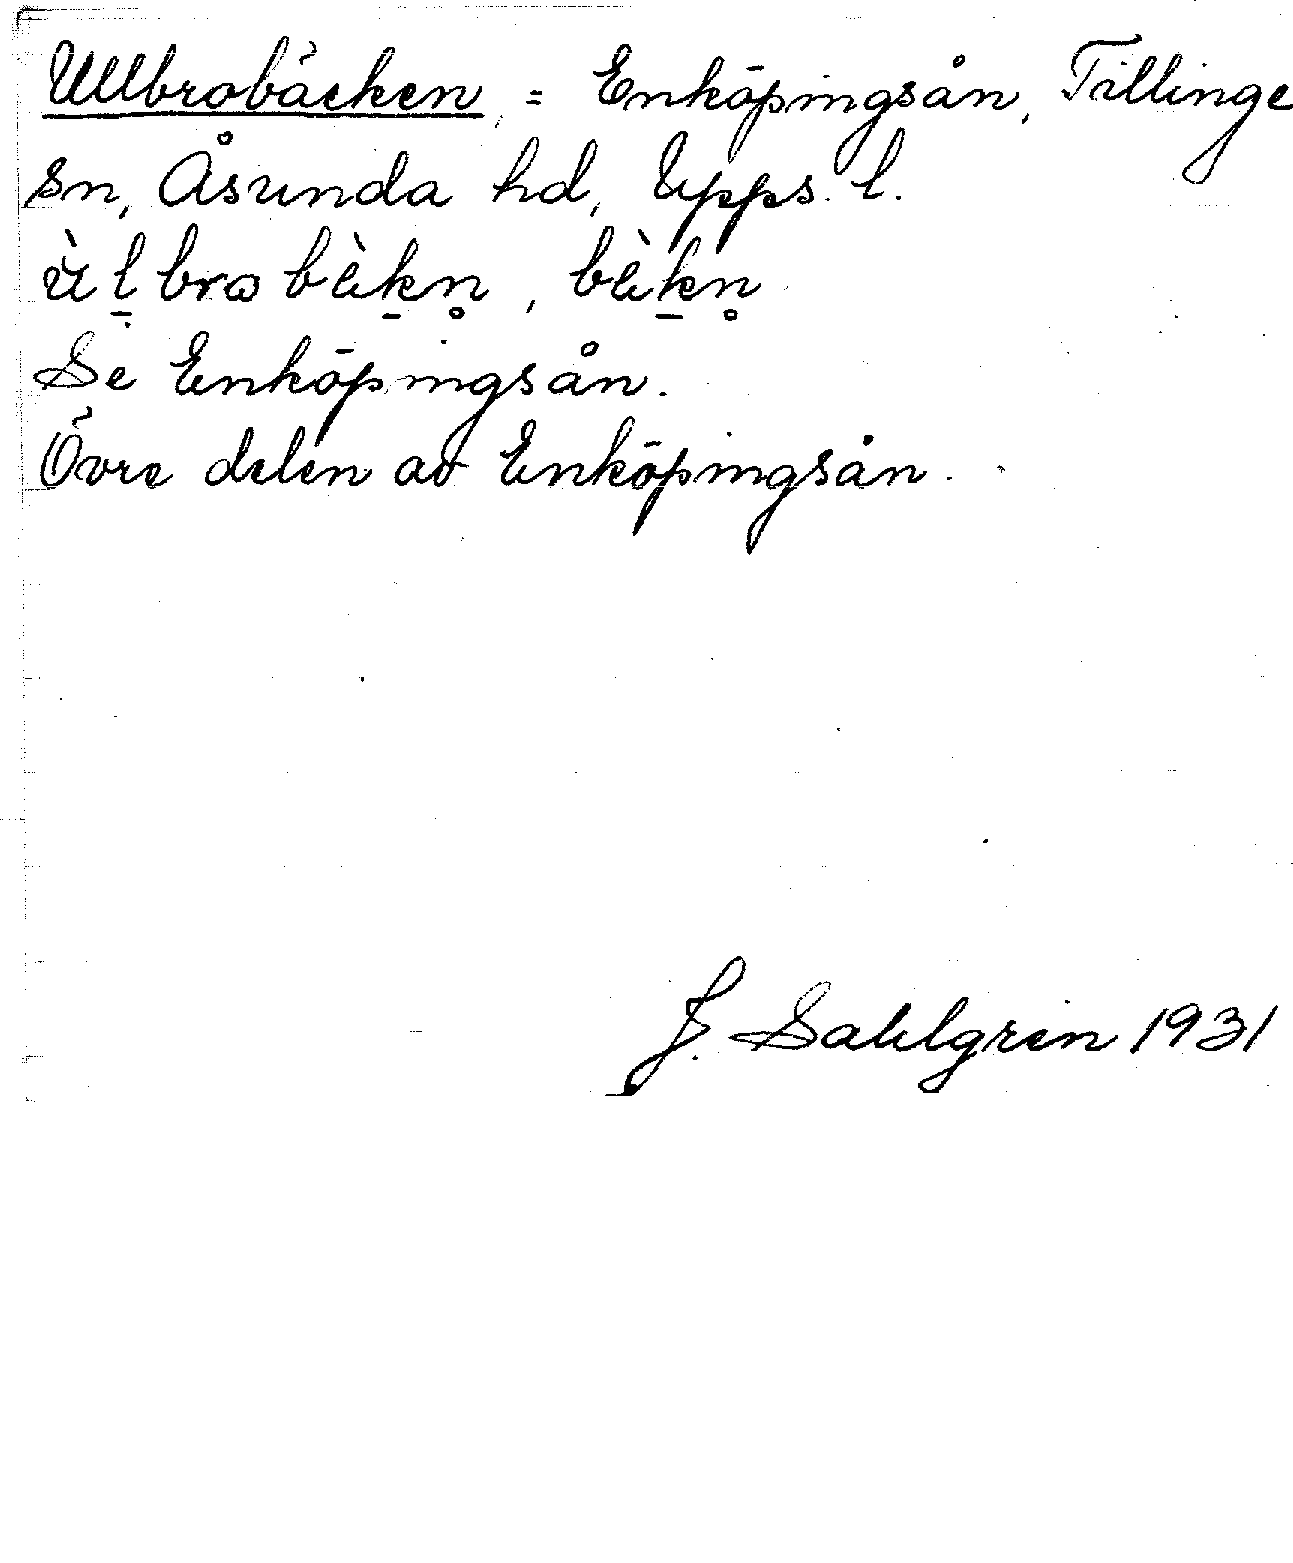 Ullbrobäcken, = Enköpingsån, Tillinge
sn, Åsunda hd, Upps. l.
Se Enköpingsån.
Övre delen av Enköpingsån.
J. Sahlgren 1931